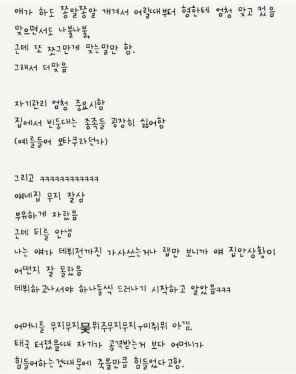 얘가 하도 쫑알쫑알 개겨서 어릴때부터 형한테 엄청 맞고 컸음
맞으면서도 나불나불,
근데 또 쪼그만게 맞는말만 함.
그래서 더맞음
자기관리 엄청 중요시함
집에서 빈둥대는 종족들 굉장히 싫어함
(예를들어 오타쿠라던가)
그리고 ㅋㅋㅋㅋㅋㅋㅋㅋㅋㅋㅋㅋ
얘네집 무지 잘삼
부유하게 자랐음
근데 티를 안냄
나는 얘가 데뷔전까진 가사쓰는거나 랩만 보니까 얘 집안상황이
어떤지 잘 몰랐음
데뷔하고나서야 하나둘씩 드러나기 시작하고 알았음ㅋㅋㅋ
어머니를 무지무지 무지무지 아낌.
태국 터졌을때 자기가 공격받는거 보다 어머니가
힘들어하는것때문에 죽을만큼 힘들었다고함.